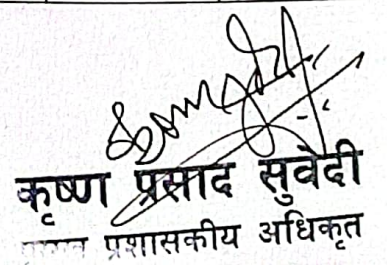 कृष्ण प्रसाद सुवेदी
प्रशासकीय अधिकृत